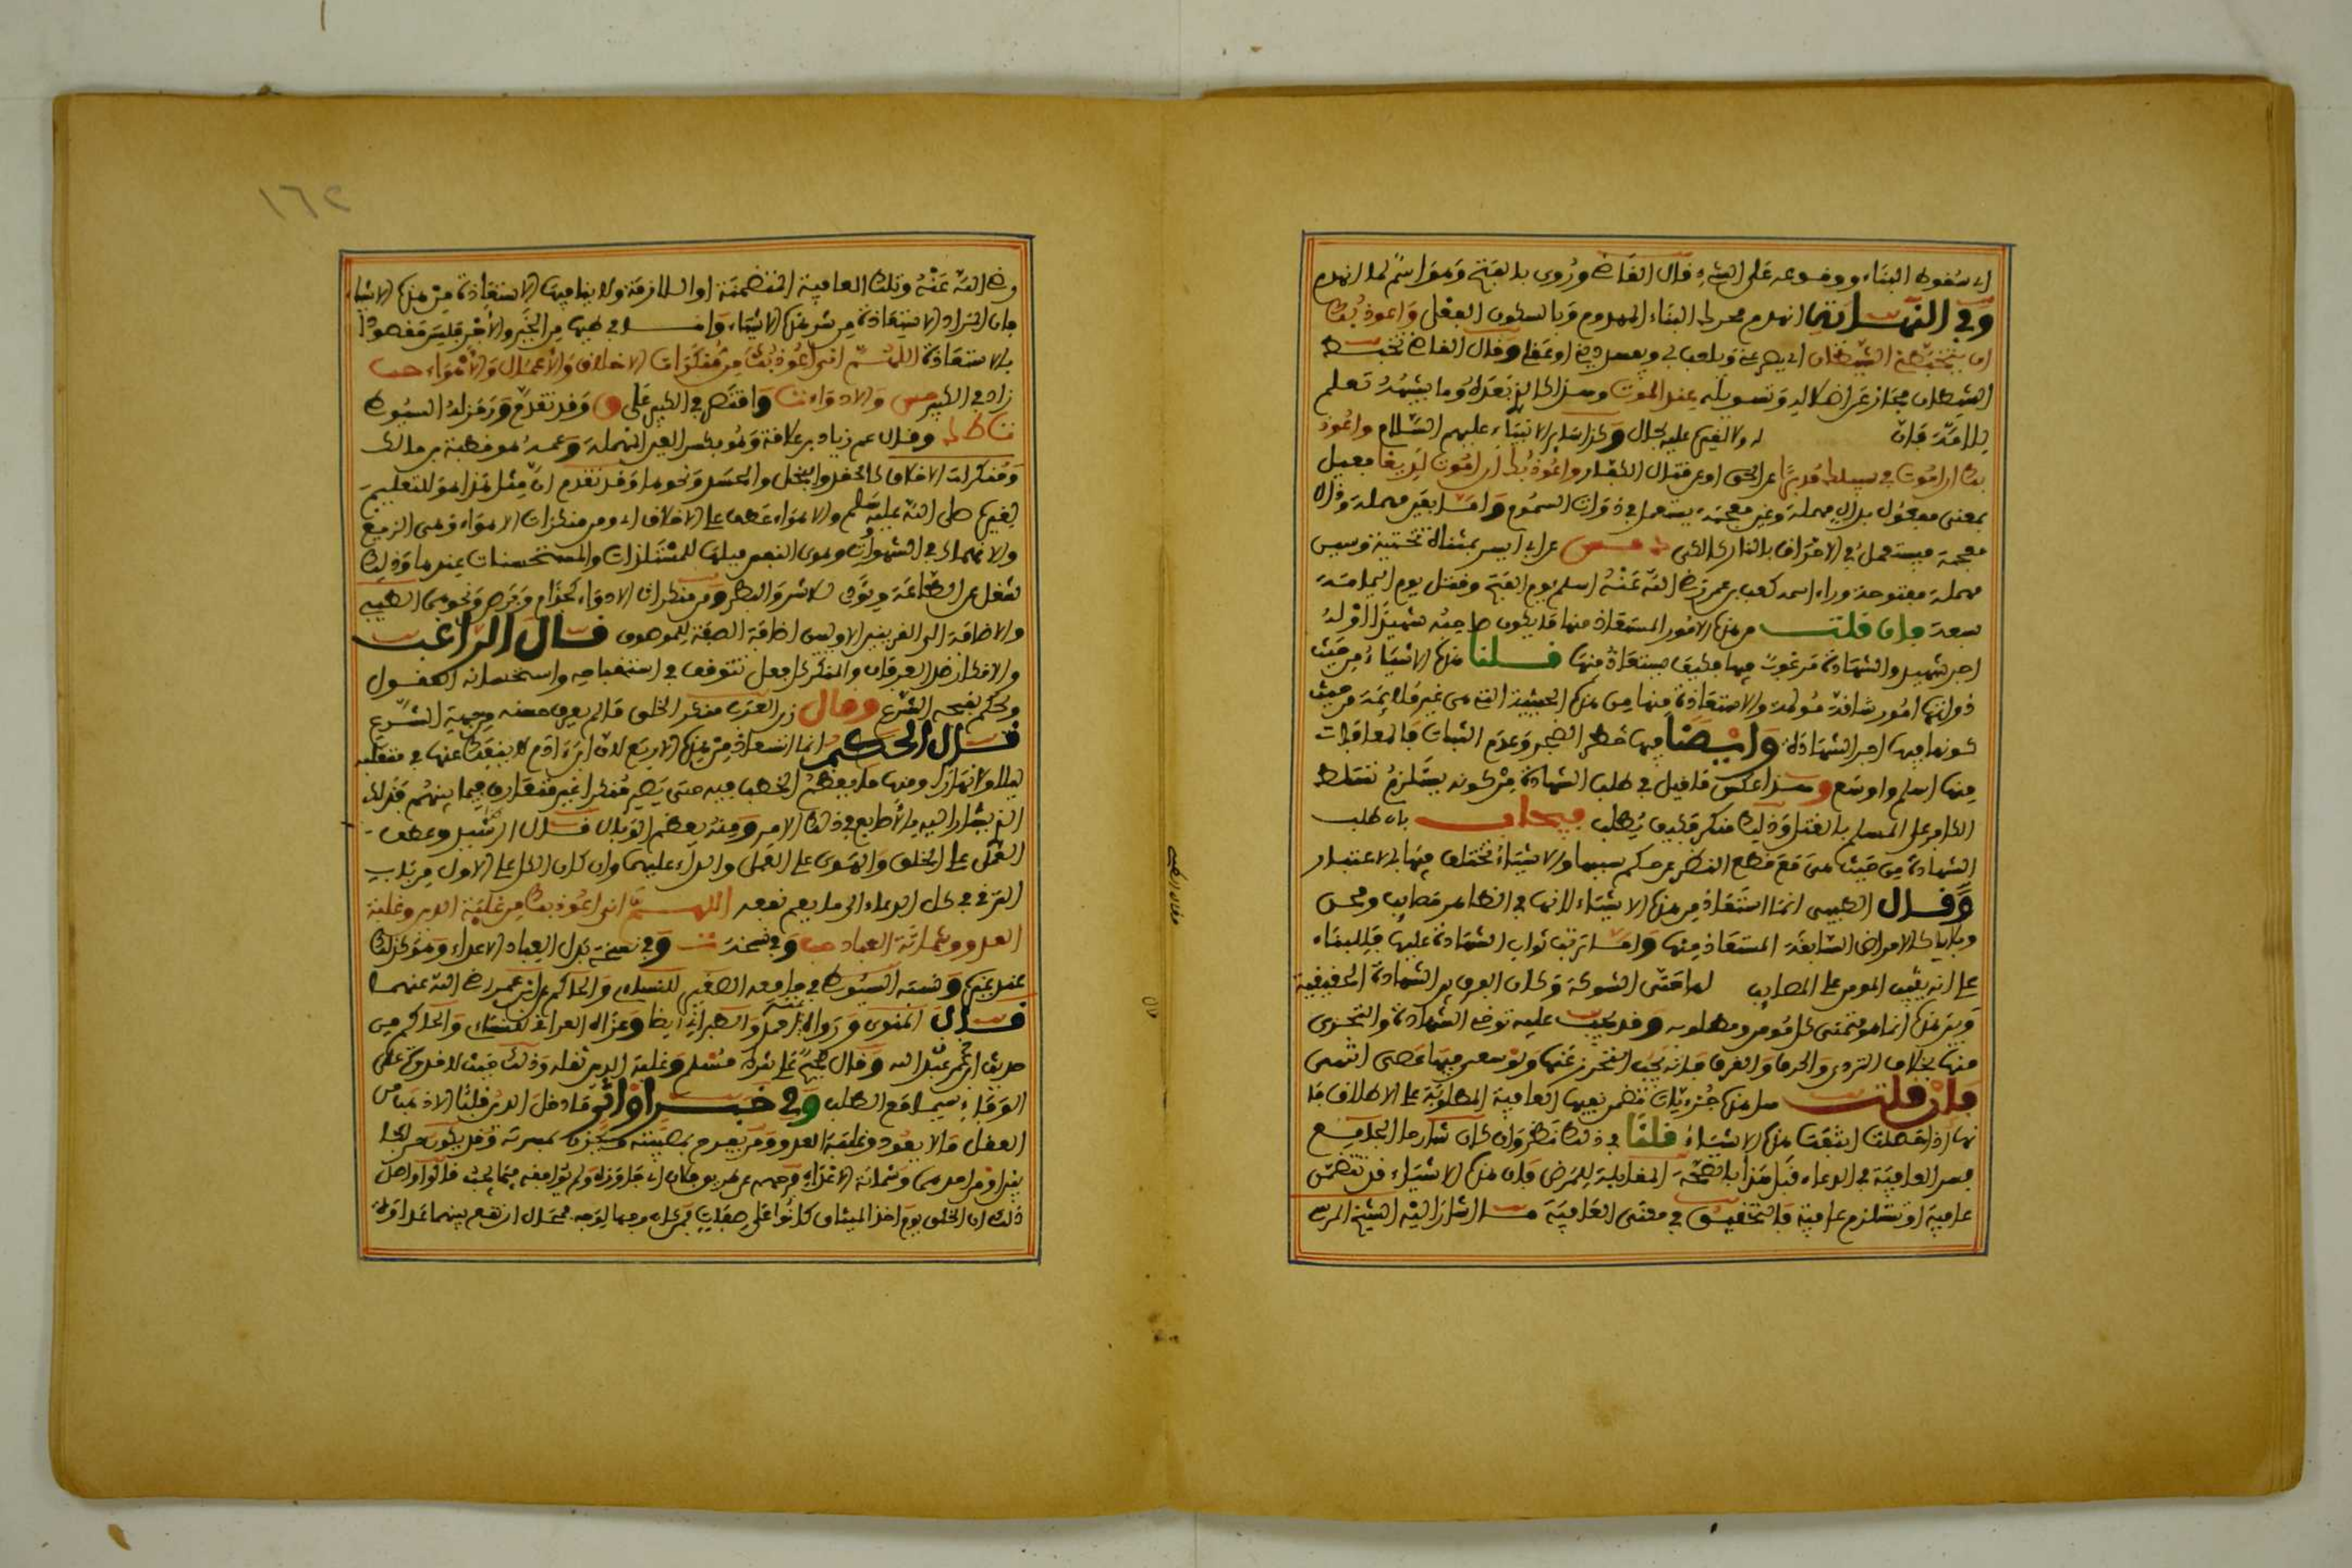 اي سقوط البناء ووقوعه على الشيء قال القاضي وروى بالفتح وهو اسم لما انهدم
وفي النهاية الهدم محركا البناء المهدوم وبالسكون الفعل وأعوذ بك
ان يتخبطني الشيطان اي يصرعني ويلعب بي ويفسد ديني او عقلي وقال القاضي تخبط
الشيطان مجاز عن اضلاله وتسويله عند الموت وهذا كالذي بعده وما يشبهه تعليم
للأمة فان له ولا لغيره عليه بحال وكذا سائر الأنبياء عليهم السلام وأعوذ
بك ان اموت في سبيلك مدبرا عن الحق او عن قتال الكفار وأعوذ بك ان اموت لديغا فعيل
بمعنى مفعول بدال مهملة وغين معجمة يستعمل في ذوات السموم واما بعين مهملة وذال
معجمة فيستعمل في الاحراق بالنار كالكي عن ابي اليسر بمثناة تحتية وسين
مهملة مفتوحة وراء اسمه كعب بن عمر رضي الله عنه اسلم يوم الفتح وقتل يوم اليمامة
فان قلت من هذه الامور المستعاذ منها ما يكون صاحبه شهيدا او له
اجر شهيد والشهادة مرغوب فيها فكيف يستعاذ منها قلنا هذه الاشياء من حيث
ذواتها امور شاقة مؤلمة والاستعاذة منها من هذه الحيثية التي هي غير ملائمة من حيث
كونها فيها اجر الشهادة وأيضا فيها خطر الضجر وعدم الثبات فالمعافاة
منها اسلم واوسع وهذا عكس ما قيل في طلب الشهادة من كونه يستلزم تسلط
الكافر على المسلم بالقتل وذلك منكر فكيف يطلب فيجاب بان طلب
الشهادة من حيث هي مع قطع النظر عن حكم سببها والاشياء تختلف فيها بالاعتبار
وقال الطيبي انما استعاذ من هذه الاشياء لانها في الظاهر مصايب ومحن
وبلايا كالامراض السابقة المستعاذ منها واما ترتب ثواب الشهادة عليها فللبناء
على انه يثيب المومن على المصايب لها حتى الشوكة وكان الفرق بين الشهادة الحقيقية
وبين هذه انها هو متمنى كل مومن ومطلوبه وقد يجب عليه توخي الشهادة والتحري
منها بخلاف التردي والحرق والغرق فانه يجب التحرز عنها ولو سعى فيها عصى انتهى
فان قلت هل هذه جزئيات تضمن نفيها العافية المطلوبة على الاطلاق فا
نها اذا حصلت انتفت هذه الاشياء قلنا في ذلك نظر وان كان شارحا الجامع
فسر العافية في الدعاء قبل هذا بالصحة المقابلة للمرض فان هذه الاشياء قد تتضمن
عافية او تستلزم عافية فالتحقيق في معنى العافية ما اشار اليه الشيخ المرسي
رضي الله عنه وتلك العافية المتضمنة او اللازمة ولا ينافيها الاستعاذة من هذه الاشياء
فان المراد الاستعاذة من شر هذه الاشياء واما في طيها من الخير والاجر فليس مقصودا
بالاستعاذة اللهم اني اعوذ بك من منكرات الاخلاق والاعمال والاهواء
زاد في الكبير والادواء واقتصر في الكبير على وقد تقدم ورمز له السيوطي
وقال عم زياد بن علاقة وهو بكسر العين المهملة وعمه هو قطبة بن مالك
ومنكرات الاخلاق كالحقد والبخل والحسد ونحوها وقد تقدم ان مثل هذا هو للتعليم
لغيره صلى الله عليه وسلم والاهواء عطف على الاخلاق اي ومن منكرات الاهواء وهي الزيغ
والانهماك في الشهوات وهوى النفس ميلها للمستلذات والمستحسنات عندها وذلك
يشغل عن الطاعة ويؤدي للاشر والبطر ومن منكرات الادواء كجذام وبرص ونحوهما الطيبي
والاضافة الى القرينتين الاوليين اضافة الصفة للموصوف قال الراغب
والانكار ضد العرفان والمنكر كل فعل تتوقف في استقباحه واستحسانه العقول
ويحكم بقبحه الشرع وقال زين العرب منكر الخلق ما لم يعرف حسنه من جهة الشرع
قال الحكيم انما استعاذ من هذه الاربع لان ابن ادم لا ينفك عنها في متقلبه
ليلا ونهارا ومنها ما يعظم الخطب فيه حتى يصير منكرا غير متعارف فيما بينهم فذلك
الذي يشار اليه بالاصابع في ذلك الامر ومنه يعظم الوبال قال الشبل وعطف
العمل على الخلق والهوى على العمل والداء عليهما وان كان الكل على الاول من باب
الترقي في كل الدعاء الى ما يعم نفعه اللهم اني اعوذ بك من غلبة الدين وغلبة
العدو وشماتة العباد وفي نسخة وفي نسخة بدل العباد الاعداء وهو كذلك
عند غيره ونسبه السيوطي في جامعه الصغير للنساءي والحاكم عن ابن عمر رضي الله عنهما
قال المنوي ورواه احمد والطبراني ايضا وعزاه العراقي للنساءي والحاكم من
حديث ابن عمر عبد الله وقال صحيح على شرط مسلم وغلبة الدين ثقله وذلك حيث لا قدرة على
الوفاء سيما مع الطلب وفي خبر اوائر ما دخل الدين قلبا الا ذهب من
العقل ما لا يعود وغلبة العدو ومن يفرح بمصيبته ويحزن بمسرته وقد يكون من الجا
نبين او من احدهما وشماتة الاعداء فرحهم
ذلك ان الخلق يوم اخذ الميثاق كانوا على صفات فمن كان وجها لوجه فمحال ان تقع بينهما عداوة
١٦٢